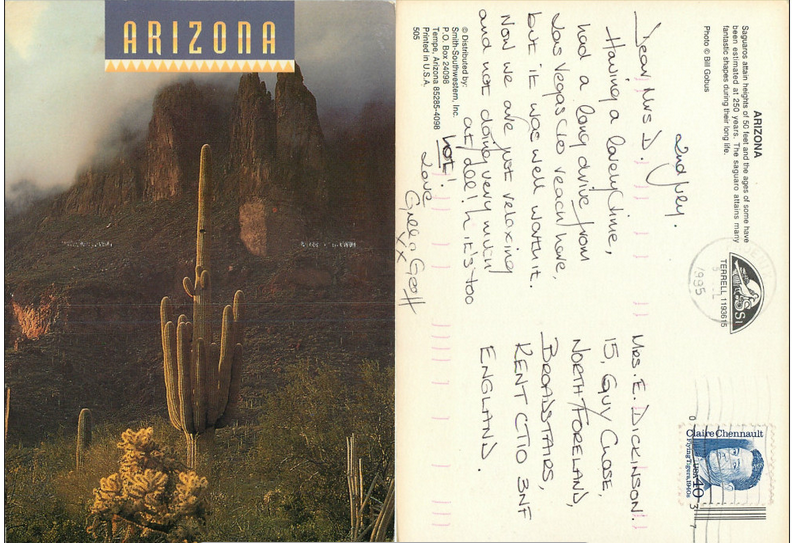 ARIZONA
ARIZONA
Saguaros attain heights of 50 feet and the ages of some have
been estimated at 250 years. The saguaro attains many
fantastic shapes during their long life.
Photo © Bill Gobus
2nd July.
Dear Mrs D.
Having a lovely time,
had a long drive from
Las Vegas to reach here,
but it was well worth it.
Now we are just relaxing
and not doing very much
at all! It's too
HOT!
Love
Geoff
XX
© Distributed by:
Smith-Southwestern, Inc.
P.O. Box 24098
Tempe, Arizona 85285-4098
Printed in U.S.A.
505
TERRELL 1193615
1995
Claire Chennault
Flying Tigers, 1940s
USA 40
MRS. E. DICKINSON.
15, GUY CLOSE,
NORTH FORELAND,
BROADSTAIRS,
KENT CT10 3NF
ENGLAND.